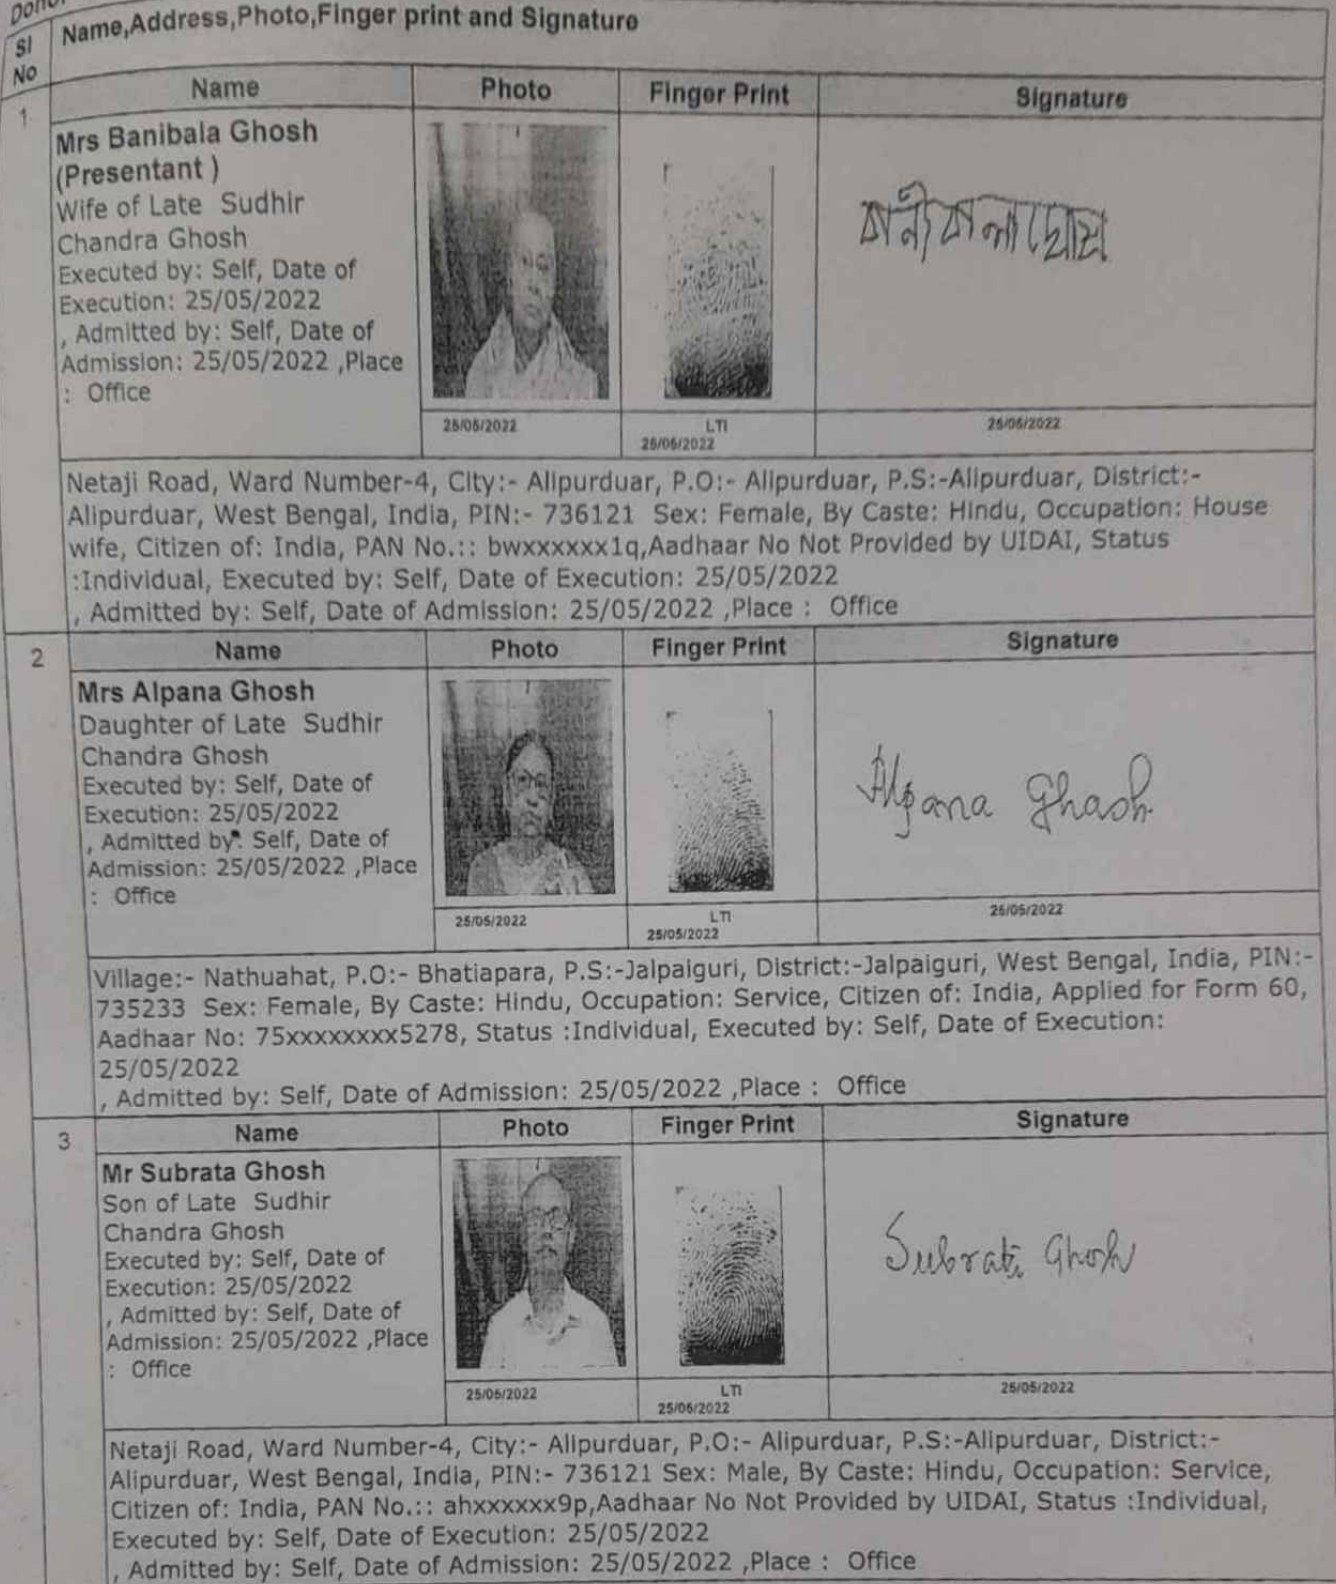 Name,Address,Photo,Finger print and Signature
Sl
No
Name Photo Finger Print Signature
1
Mrs Banibala Ghosh
(Presentant )
Wife of Late Sudhir
Chandra Ghosh
Executed by: Self, Date of
Execution: 25/05/2022
, Admitted by: Self, Date of
Admission: 25/05/2022 ,Place
: Office
বানীবালা ঘোষ
25/05/2022 LTI 25/05/2022
25/05/2022
Netaji Road, Ward Number-4, City:- Alipurduar, P.O:- Alipurduar, P.S:-Alipurduar, District:-
Alipurduar, West Bengal, India, PIN:- 736121 Sex: Female, By Caste: Hindu, Occupation: House
wife, Citizen of: India, PAN No.:: bwxxxxxx1q,Aadhaar No Not Provided by UIDAI, Status
:Individual, Executed by: Self, Date of Execution: 25/05/2022
, Admitted by: Self, Date of Admission: 25/05/2022 ,Place : Office
2 Name Photo Finger Print Signature
Mrs Alpana Ghosh
Daughter of Late Sudhir
Chandra Ghosh
Executed by: Self, Date of
Execution: 25/05/2022
, Admitted by: Self, Date of
Admission: 25/05/2022 ,Place
: Office
Alpana Ghosh
25/05/2022 LTI 25/05/2022
25/05/2022
Village:- Nathuahat, P.O:- Bhatiapara, P.S:-Jalpaiguri, District:-Jalpaiguri, West Bengal, India, PIN:-
735233 Sex: Female, By Caste: Hindu, Occupation: Service, Citizen of: India, Applied for Form 60,
Aadhaar No: 75xxxxxxxx5278, Status :Individual, Executed by: Self, Date of Execution:
25/05/2022
, Admitted by: Self, Date of Admission: 25/05/2022 ,Place : Office
3 Name Photo Finger Print Signature
Mr Subrata Ghosh
Son of Late Sudhir
Chandra Ghosh
Executed by: Self, Date of
Execution: 25/05/2022
, Admitted by: Self, Date of
Admission: 25/05/2022 ,Place
: Office
Subrata Ghosh
25/05/2022 LTI 25/05/2022
25/05/2022
Netaji Road, Ward Number-4, City:- Alipurduar, P.O:- Alipurduar, P.S:-Alipurduar, District:-
Alipurduar, West Bengal, India, PIN:- 736121 Sex: Male, By Caste: Hindu, Occupation: Service,
Citizen of: India, PAN No.:: ahxxxxxx9p,Aadhaar No Not Provided by UIDAI, Status :Individual,
Executed by: Self, Date of Execution: 25/05/2022
, Admitted by: Self, Date of Admission: 25/05/2022 ,Place : Office